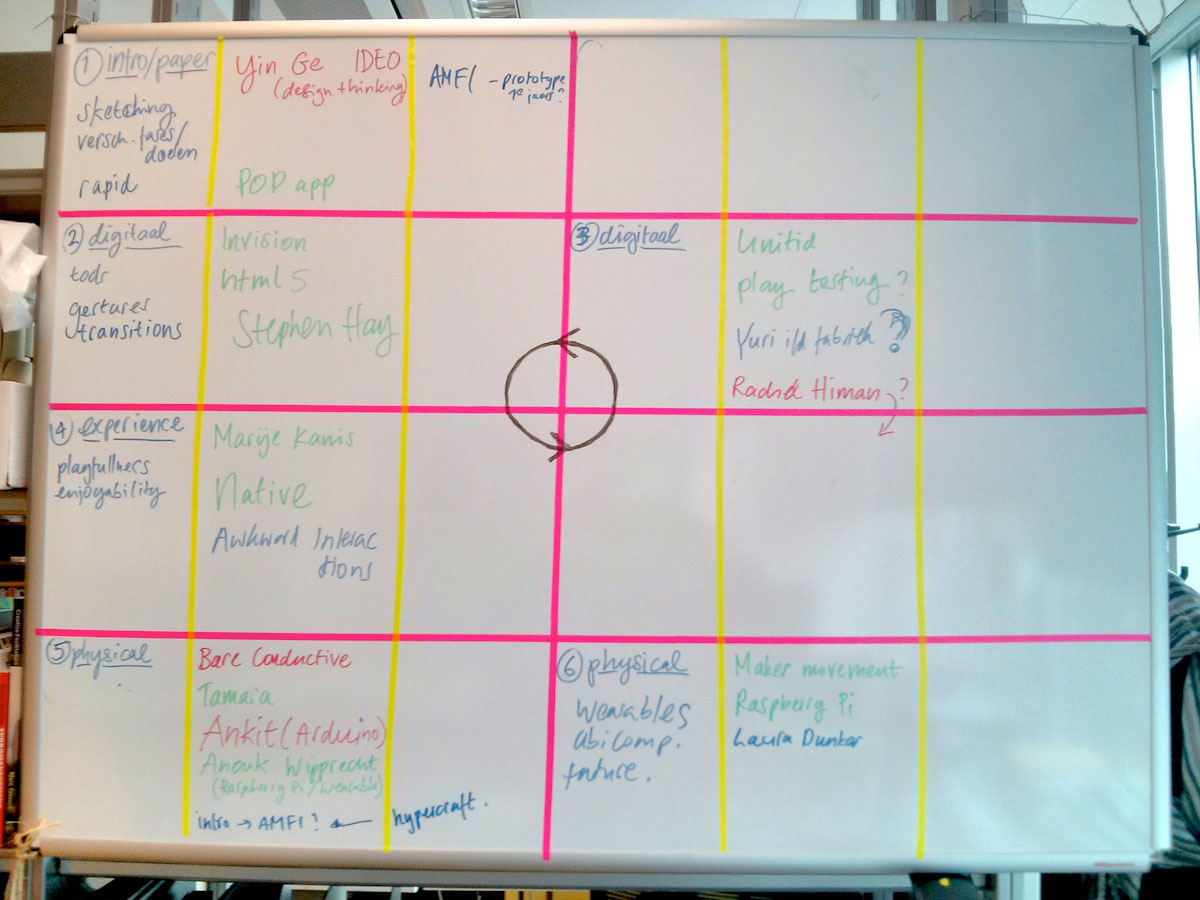 ① intro/paper
sketching
versch. fases/
doelen
rapid
Yin Ge IDEO
(design thinking)
POP app
AMFI - prototype
1e jaars?
② digitaal
tools
gestures
transitions
Invision
html5
Stephen Hay
③ digitaal
Unitid
play testing?
Yuri i/d fabriek?
Rachel Himan?
④ experience
playfullness
enjoyability
Marije Kanis
Native
Awkward Interac
tions
⑤ physical
Bare Conductive
Tamara
Ankit (Arduino)
Anouk Wipprecht
(Raspberry Pi / wearable)
intro → AMFI? ← hypercraft.
⑥ physical
Wearables
Ubicomp.
future.
Maker movement
Raspberry Pi
Laura Dunker